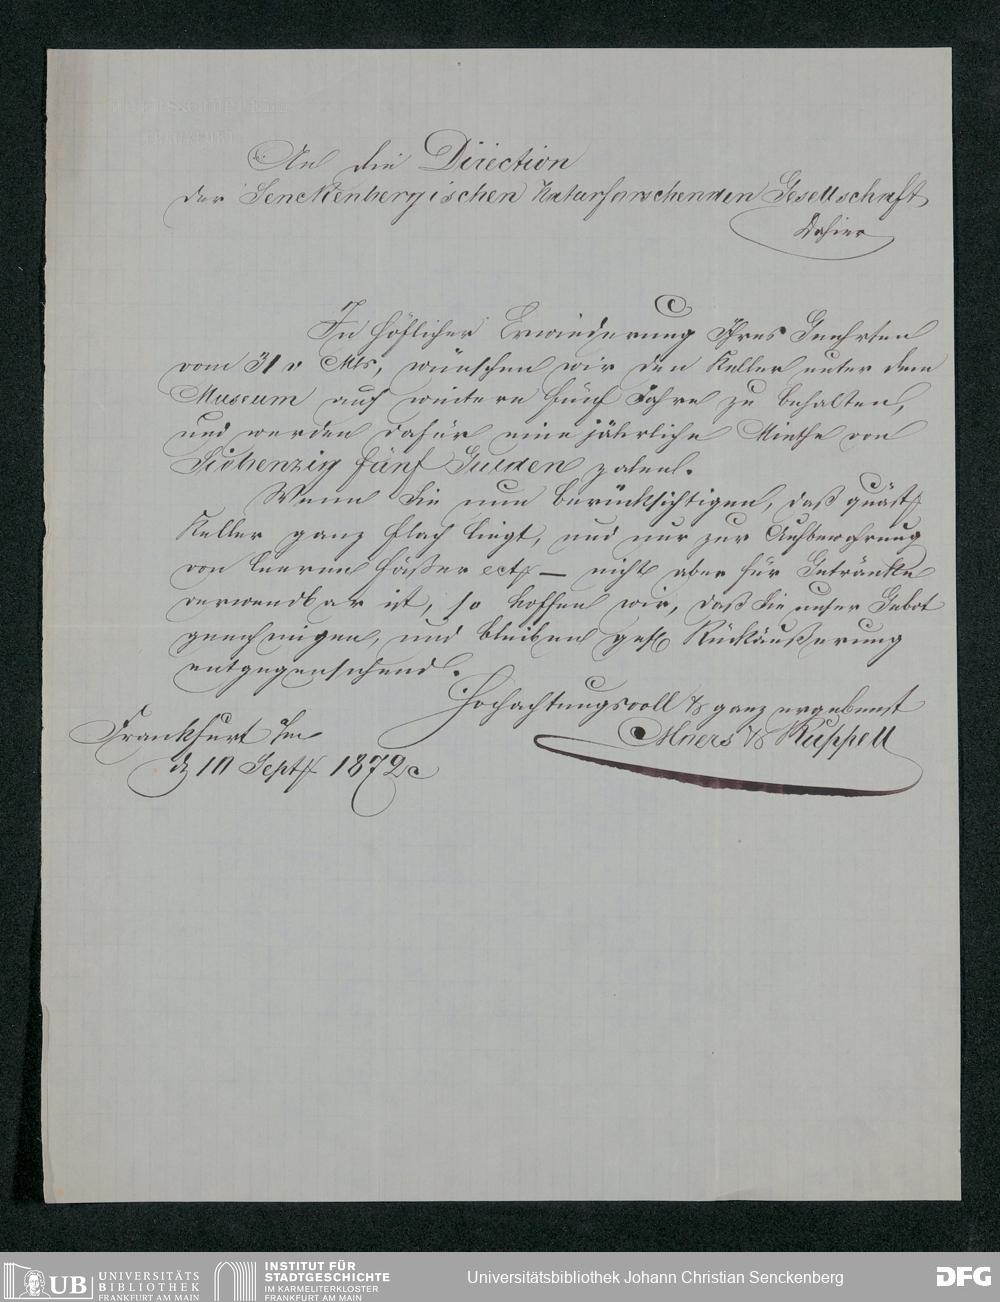 An die Direction
der Senckenbergischen Naturforschenden Gesellschaft
Dahier
In höflicher Erwiederung Ihres Geehrten
vom 31 v Mts, wünschen wir den Keller unter dem
Museum auf weitere fünf Jahre zu behalten,
und werden dafür eine jährliche Miethe von
Siebenzig fünf Gulden zalen.
Wenn Sie nun berücksichtigen, daß quäst
Keller ganz flach liegt, und nur zur Aufbewahrung
von leeren Fässer ect – nicht aber für Getränke
verwendbar ist, so hoffen wir, daß Sie unser Gebot
genehmigen, und bleiben gefl Rückäußerung
entgegensehend.
Hochachtungsvoll & ganz ergebenst
& Rüppell
Frankfurt a/m
d 10 Sept 1872
UB UNIVERSITÄTS
BIBLIOTHEK
FRANKFURT AM MAIN
INSTITUT FÜR
STADTGESCHICHTE
IM KARMELITERKLOSTER
FRANKFURT AM MAIN
Universitätsbibliothek Johann Christian Senckenberg
DFG